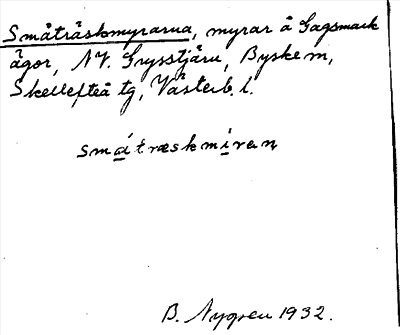 Småträskmyrarna, myrar å Gagsmark
ägor, NV. Grysstjärn, Byske m,
Skellefteå tg, Västerb. l.
smátræskmiran
B. Nygren 1932.